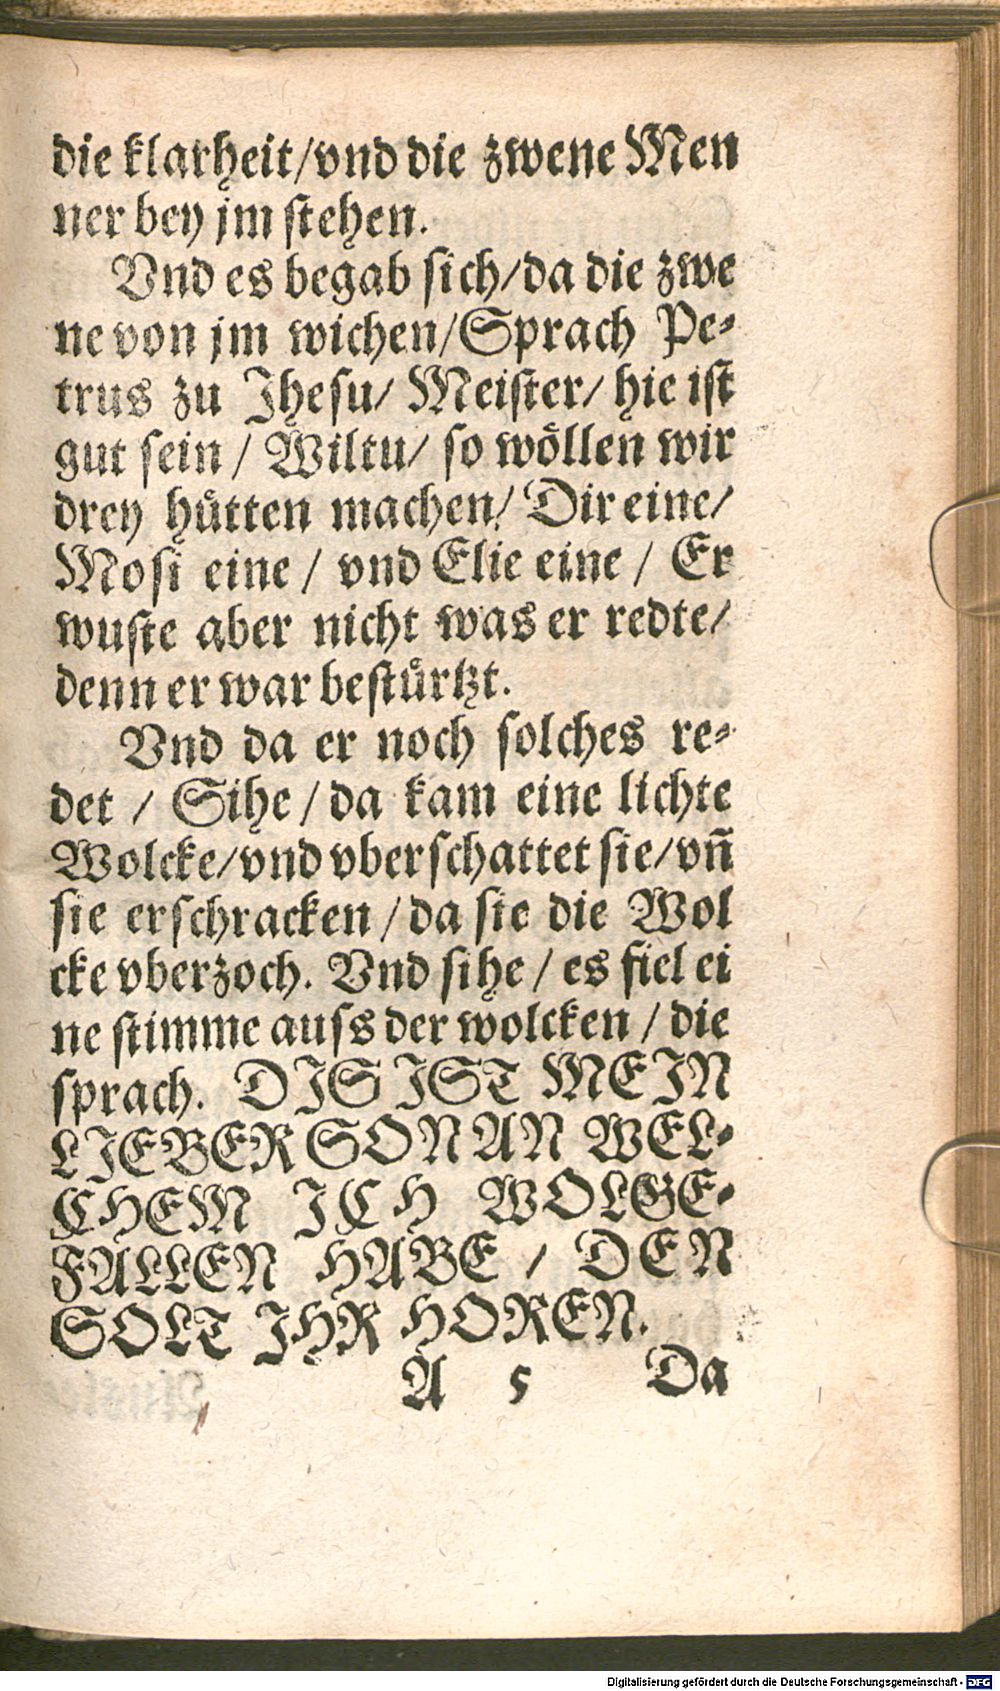 die klarheit/vnd die zwene Men
ner bey jm stehen.
Vnd es begab sich/da die zwe
ne von jm wichen/Sprach Pe⸗
trus zu Jhesu/ Meister/ hie ist
gut sein / Wiltu/ so wöllen wir
drey hütten machen/ Dir eine/
Mosi eine / vnd Elie eine / Er
wuste aber nicht was er redte/
denn er war bestürtzt.
Vnd da er noch solches re⸗
det / Sihe / da kam eine lichte
Wolcke/vnd vberschattet sie/vñ
sie erschracken / da sie die Wol
cke vberzoch. Vnd sihe / es fiel ei
ne stimme auss der wolcken / die
sprach. DJS JST MEJN
LJEBER SON AN WEL⸗
CHEM JCH WOLGE⸗
FALLEN HABE / DEN
SOLT JHR HOREN.
A 5 Da
Digitalisierung gefördert durch die Deutsche Forschungsgemeinschaft - DFG